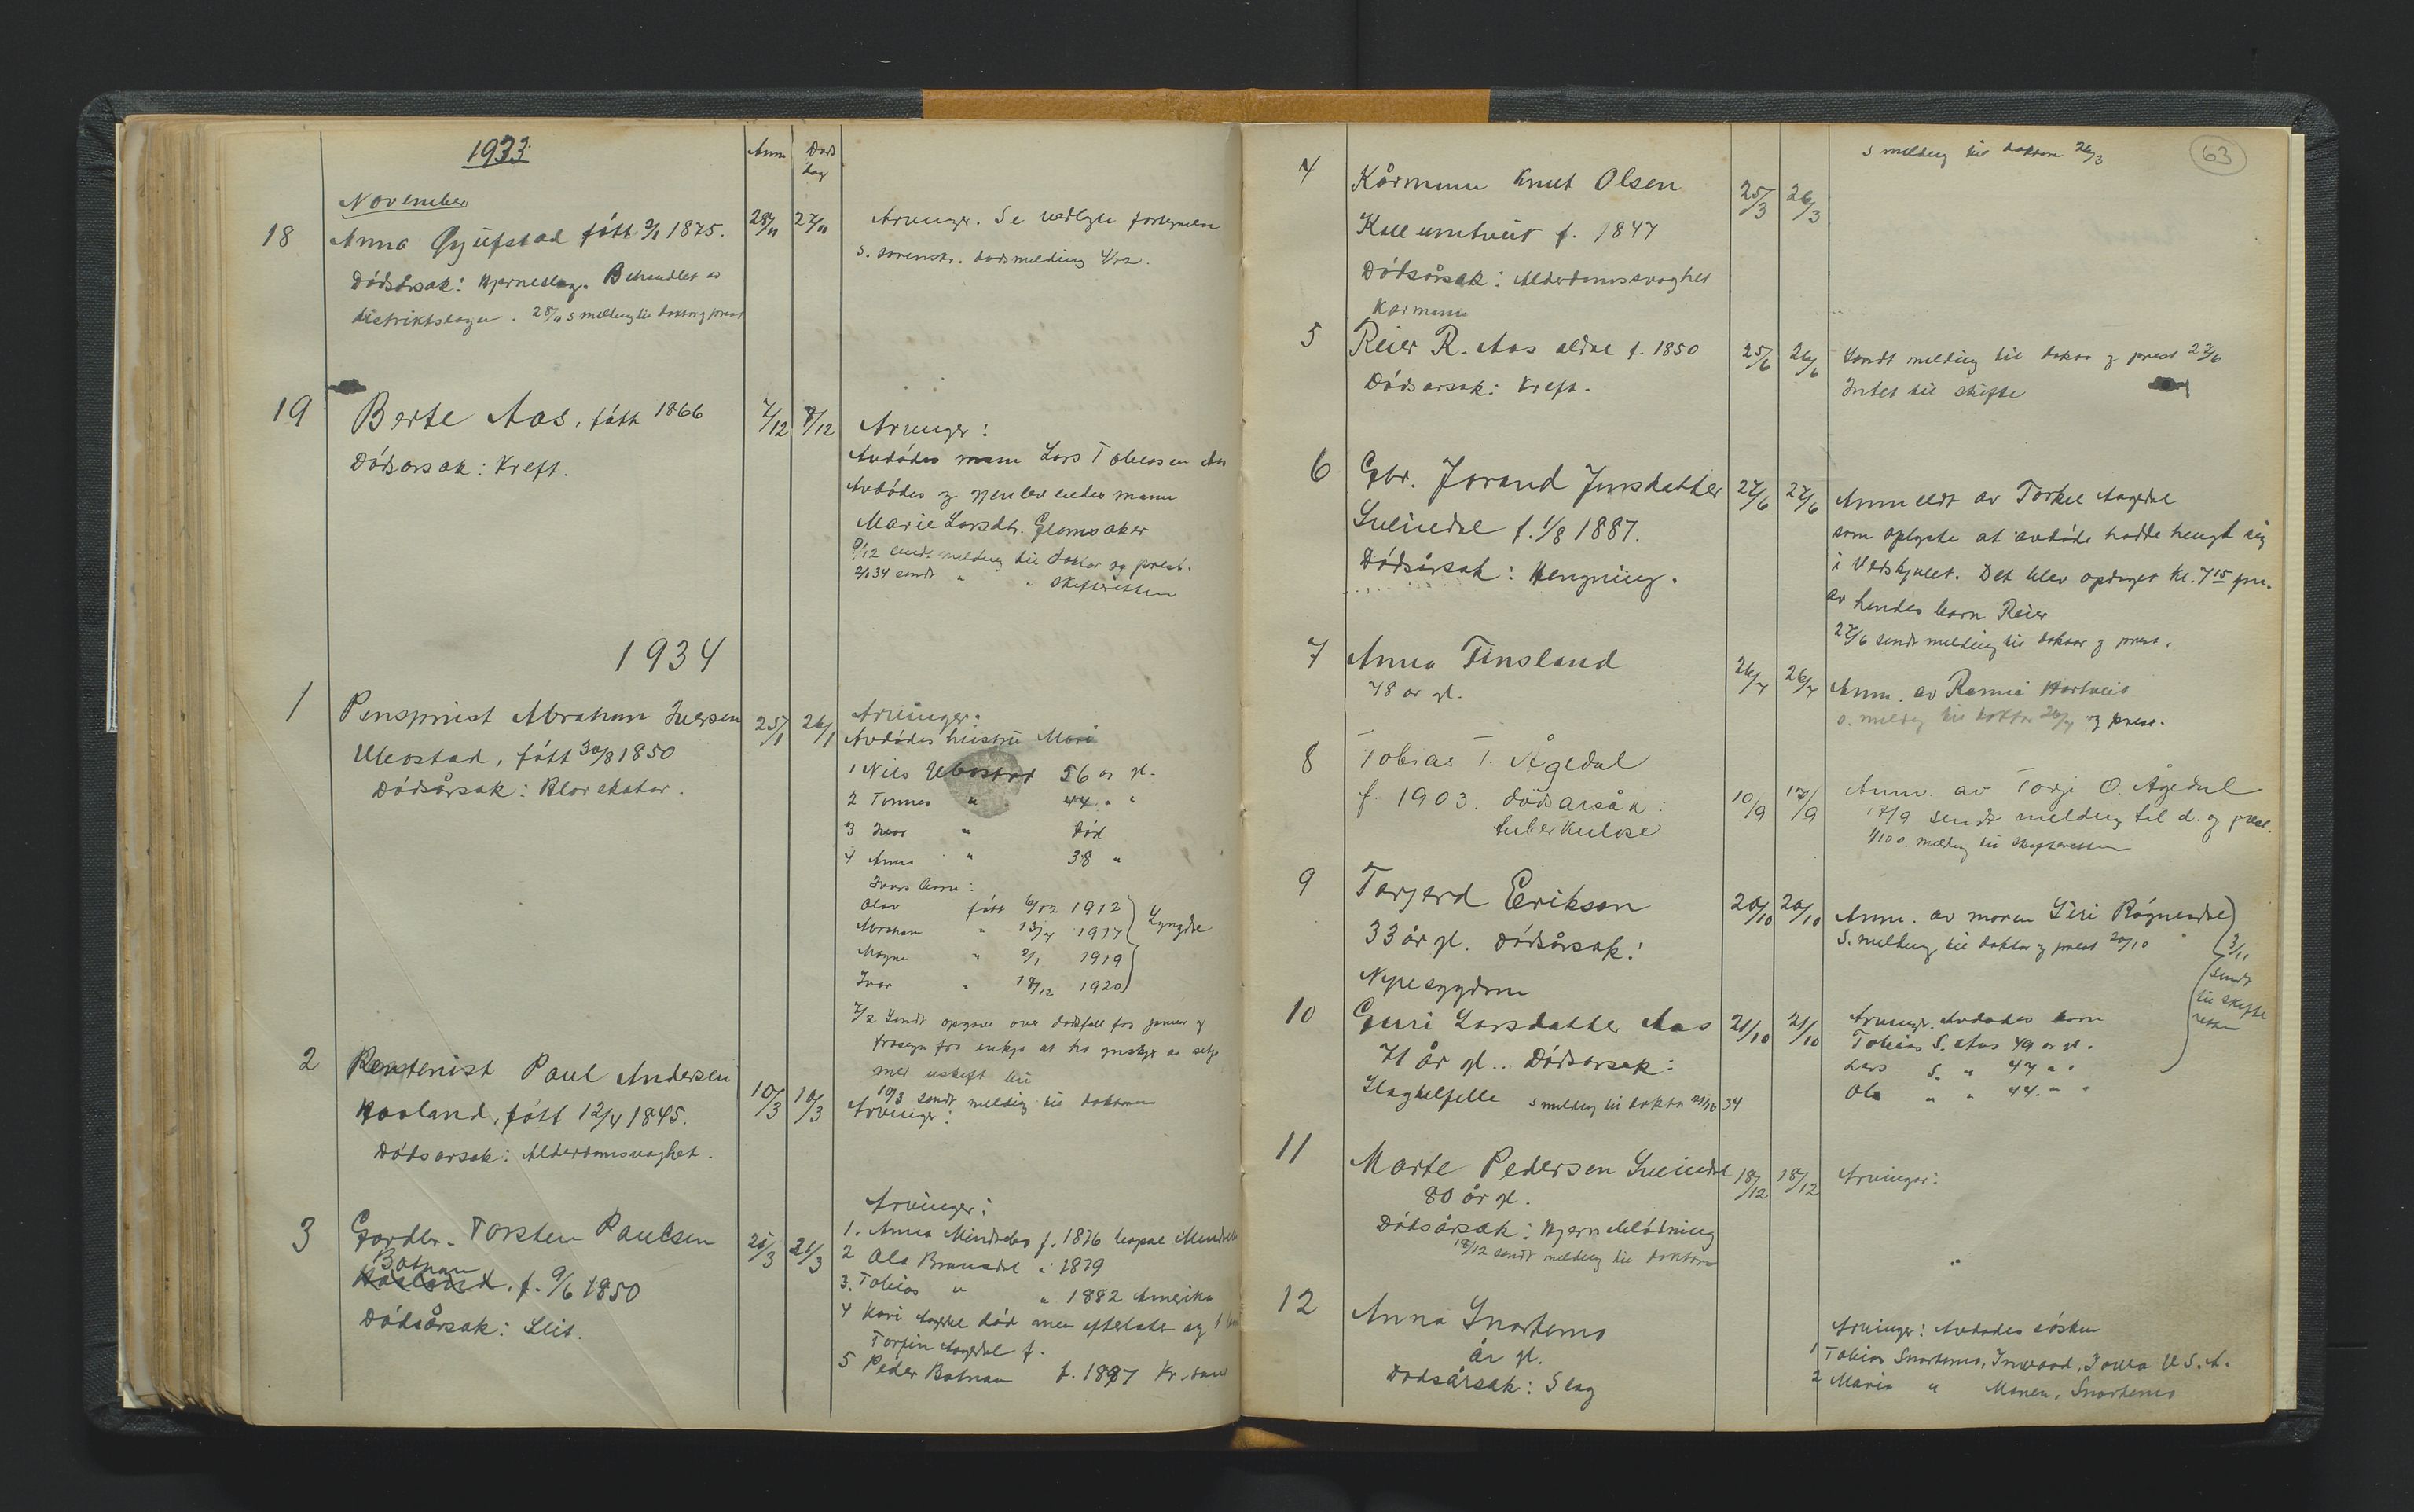 1933
Anm Døds dag
November
18 Anna Gyufstad fött 2/1 1875. 28/11 27/11 Arvinger. Se vedlagte fortegnelse
Dödsårsak: Hjerneslag. Behandlet av s. sorenskr. dødsmelding 4/12.
distriktslægen. 28/11 s melding til doktor og prest
19 Berte Aas, fött 1866 7/12 8/12 Arvinger:
Dödsorsak: Kreft. Avdödes mann Lars Tobiassen Aas
Avdödes og gjenlevende mann
Marie Larsdtr. Glomsaker
9/12 sendt melding til doktor og prest.
2/1 34 sendt " " skifteretten
1934
1 Pensjonist Abraham Iversen 25/1 26/1 Arvinger:
Ubostad, fött 30/8 1850 Avdödes hustru Mari
Dödsårsak: Blærekatar. 1 Nils Ubostad 56 år gl.
2 Tønnes " 44 " "
3 Ivar " Död
4 Anna " 38 "
Ivars barn:
Olav fött 6/12 1912
Abraham " 13/4 1917 Lyngdal
Magne " 2/1 1919
Ivar " 18/12 1920
7/2 Sendt opgave over dødsfall for januar og
fråsegn fra enkja at ho ynskjer å setje
med uskift bu
2 Rentenist Paul Andersen 10/3 10/3 10/3 sendt melding til doktoren
Haaland, fött 12/4 1845. Arvinger:
Dødsorsak: Alderdomsvaghet.
3 Gardbr. Torsten Paulsen 21/3 21/3 Arvinger:
Botnan 1. Anna Mindrebø f. 1876
Haaland. f. 9/6 1850 2 Ola " 1879
Dödsårsak: Slit. 3. Tobias " " 1882 Amerika
4 Kari Aagedal död men efterlater seg 1
Torfin Aagedal f.
5 Peder Botnan f. 1887 Kr.sand
63
s melding til doktoren 26/3
4 Kårmann Knut Olsen 25/3 26/3
Kollemtveit f. 1847
Dödsårsak: Alderdomssvaghet
Kårmann
5 Reier R. Aas eldre f. 1850 25/6 26/6 Sendt melding til doktor og prest 27/6
Dödsorsak: Kreft. Intet til skifte
6 Gbr. Jorand Jensdatter 27/6 27/6 Anmeldt av Torkel Aagedal
Sveindal f. 1/8 1887. som oplyste at avdöde hadde hengt sig
Dödsårsak: Hengning. i Vedskjulet. Det blev opdaget kl. 7 15 fm.
av hendes barn Reier
27/6 sendt melding til doktor og prest.
7 Anna Finsland 26/7 26/7 Anm. av Hortveit
78 år gl. s. melding til doktor 26/7 og prest.
8 Tobias T. Ågedal 10/9 17/9 Anm. av Torje O. Ågedal
f. 1903. dödsårsåk: 17/9 sendt melding til d. og prest.
tuberkulose 1/10 s. melding til skifteretten
9 Torgerd Erikson 20/10 20/10 Anm. av moren Siri Rögnesdal
33 år gl. Dödsårsak: S. melding til doktor og prest 20/10 3/11
Nyresygdom sendt til skifteretten
10 Guri Larsdatter Aas 21/10 21/10 Arvinger. Avdødes barn
71 år gl.. Dödsorsak: Tobias S. Aas 49 år gl.
Slagtilfelle s melding til doktor 21/10 34 Lars S. " 47 " "
Ola " " 44 " "
11 Marte Pedersen Sveindal 18/12 18/12 Arvinger:
80 år gl.
Dödsårsak: Hjerneblödning
18/12 sendt melding til doktoren
12 Anna Snartemo Arvinger: Avdödes sösken
år gl. 1 Tobias Snartemo, Inwood, Iowa U.S.A.
Dödsårsak: Slag 2 Maria " Monen, Snartemo